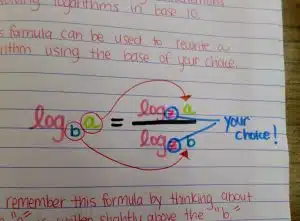 logarithms in base 10.
s formula can be used to rewrite a
rithm using the base of your choice.
log b a = log ? a / log ? b
your choice!
remember this formula by thinking about
"a" is written slightly above the "b"